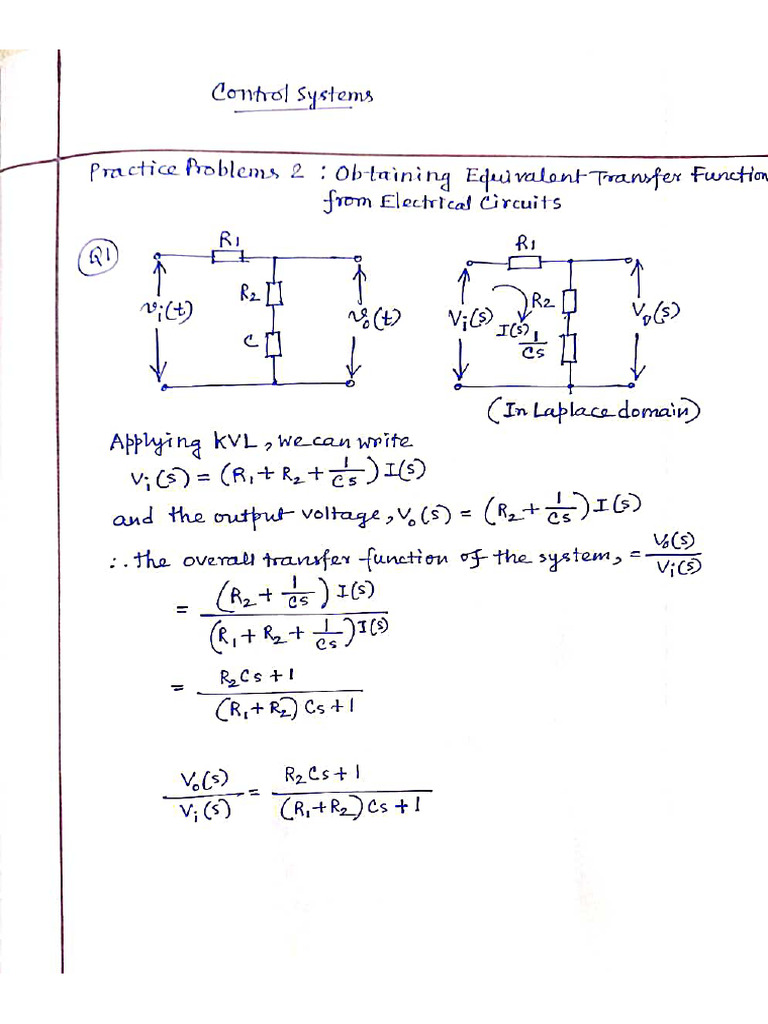 Control Systems
Practice Problems 2 : Obtaining Equivalent Transfer Function
from Electrical Circuits
Q1
R1
R2
C
vi(t)
vo(t)
R1
R2
1/Cs
I(s)
Vi(s)
Vo(s)
(In Laplace domain)
Applying KVL, we can write
Vi(s) = (R1 + R2 + 1/Cs) I(s)
and the output voltage, Vo(s) = (R2 + 1/Cs) I(s)
∴ the overall transfer function of the system, = Vo(s)/Vi(s)
= (R2 + 1/Cs) I(s) / (R1 + R2 + 1/Cs) I(s)
= R2Cs + 1 / (R1 + R2) Cs + 1
Vo(s)/Vi(s) = R2Cs + 1 / (R1 + R2) Cs + 1